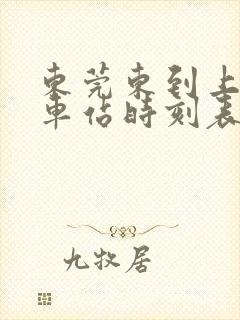 東莞東到上
車站時刻表
九牧居